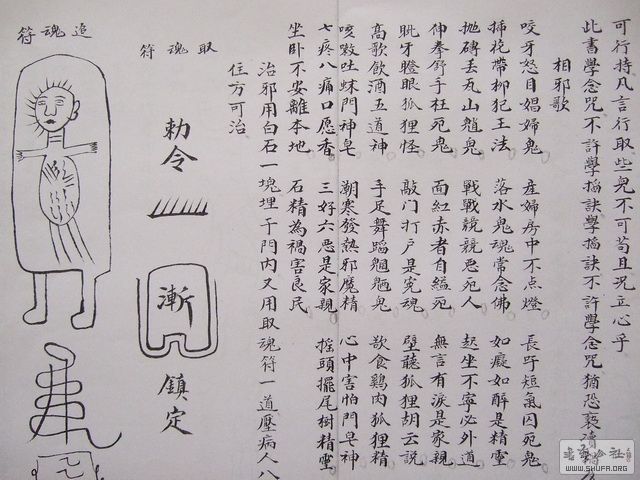 可行持凡言行取些鬼不可苟且況立心乎
此書學念咒不許學搯訣學搯訣不許學念咒猶恐褻瀆
相邪歌
咬牙怒目娼婦鬼 產婦房中不点燈 長吁短氣因死鬼
披枕帶柳犯王法 落水鬼魂常念佛 如癡如醉是精靈
拋磚丟瓦山魈鬼 戰戰兢兢惡死人 起坐不寧必外道
伸拳舒手枉死鬼 面紅赤者自縊死 無言有淚是家親
呲牙瞪眼狐狸怪 敲门打户是冤魂 壁聽狐狸胡云説
高歌飲酒五道神 手足舞蹈魍魎鬼 飲食鷄肉狐狸精
咳嗽吐蛛門神皂 潮寒發熱邪魔精 心中害怕門皂神
七疼八痛口愿香 三好六惡是家親 摇頭擺尾樹精靈
坐卧不安離本地 石精為禍害良民
治邪用白石一塊埋于門内又用取魂符一道壓病人八
住方可治
取魂符
勅令
漸
鎮定
追魂符
书法公社
WWW.SHUFA.ORG